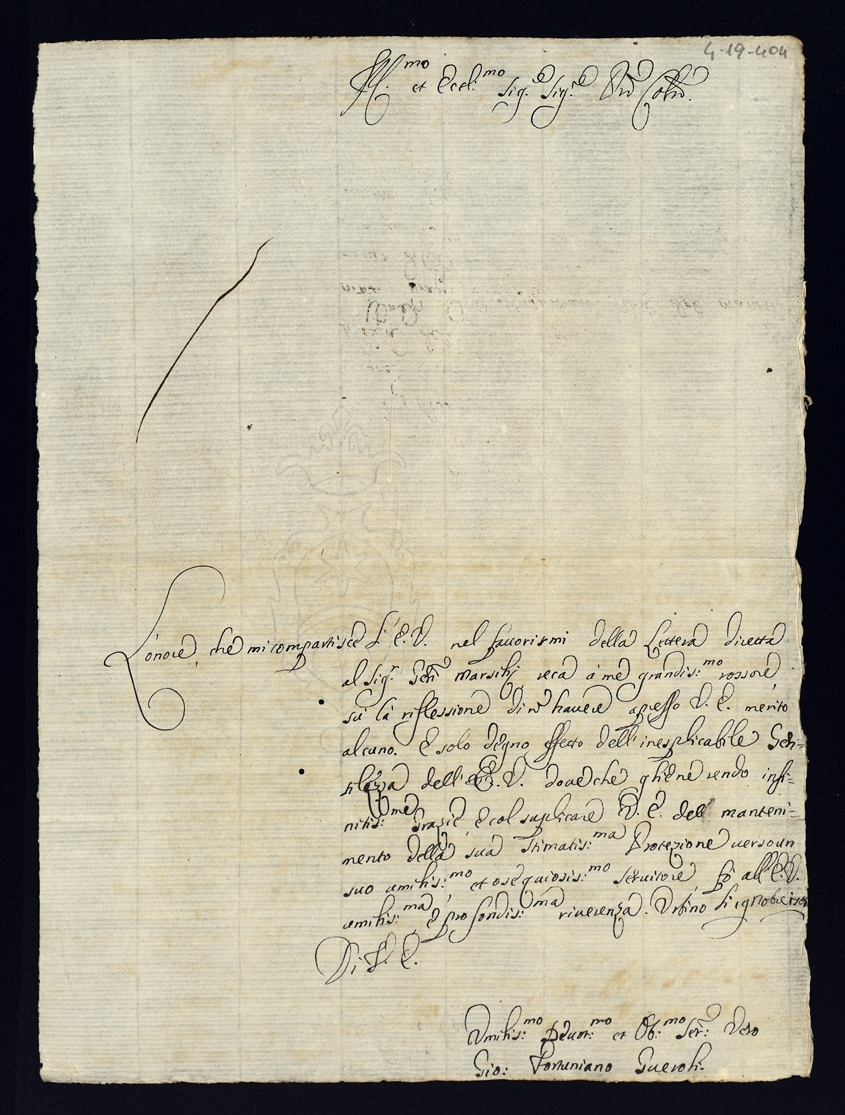 4-19-404
Ill.mo et Eccl.mo Sig.e Sig.e Prõ Colmo.
L'onore, che mi compartisce l'E.V. nel favorirmi della Lettera diretta
al Sig.r Gen. Marsilij reca à me grandis:mo rossore,
sù la riflessione di nõ havere apresso V.E. merito
alcuno. È solo degno effetto dell'inesplicabile Gen=
tilezza dell'E.V. doue che gliene rendo infi=
nitis:me grazie, e col suplicare V.E. del manteni=
mento della sua stimatis:ma Protezione verso un
suo umilis:mo, et osequiosis:mo servitore, fò all'E.V.
umilis:ma, e profondis:ma riuerenza. Urbino li
Di V.E.
Umilis:mo Deuot:mo et Ob:mo Ser: Vero
Gio: Fortuniano Gueroli.